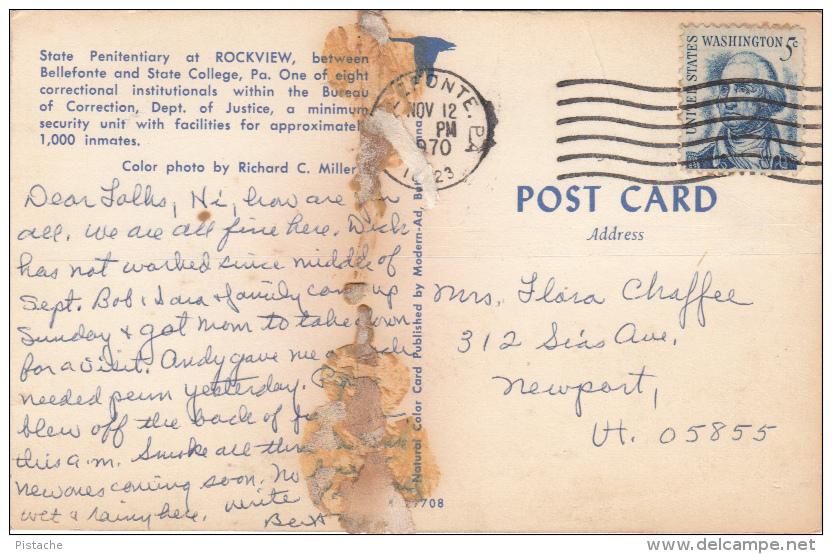 State Penitentiary at ROCKVIEW, between
Bellefonte and State College, Pa. One of eight
correctional institutionals within the Bureau
of Correction, Dept. of Justice, a minimum
security unit with facilities for approximatel
1,000 inmates.
Color photo by Richard C. Miller
Dear Folks, Hi, how are
all. We are all fine here. Dick
has not worked since middle of
Sept. Bob & family up
Sunday & got Mom to take down
for a visit. Andy gave me a
needed perm yesterday.
blew off the back of
this a.m. Smoke all thru
new ones coming soon. No
wet & rainy here. write
Natural Color Card Published by Modern-Ad,
7708
NOV 12
PM
970
UNITED STATES
WASHINGTON 5c
POST CARD
Address
Mrs. Flora Chaffee
312 Sias Ave.
Newport,
Vt. 05855
Pistache
www.delcampe.net